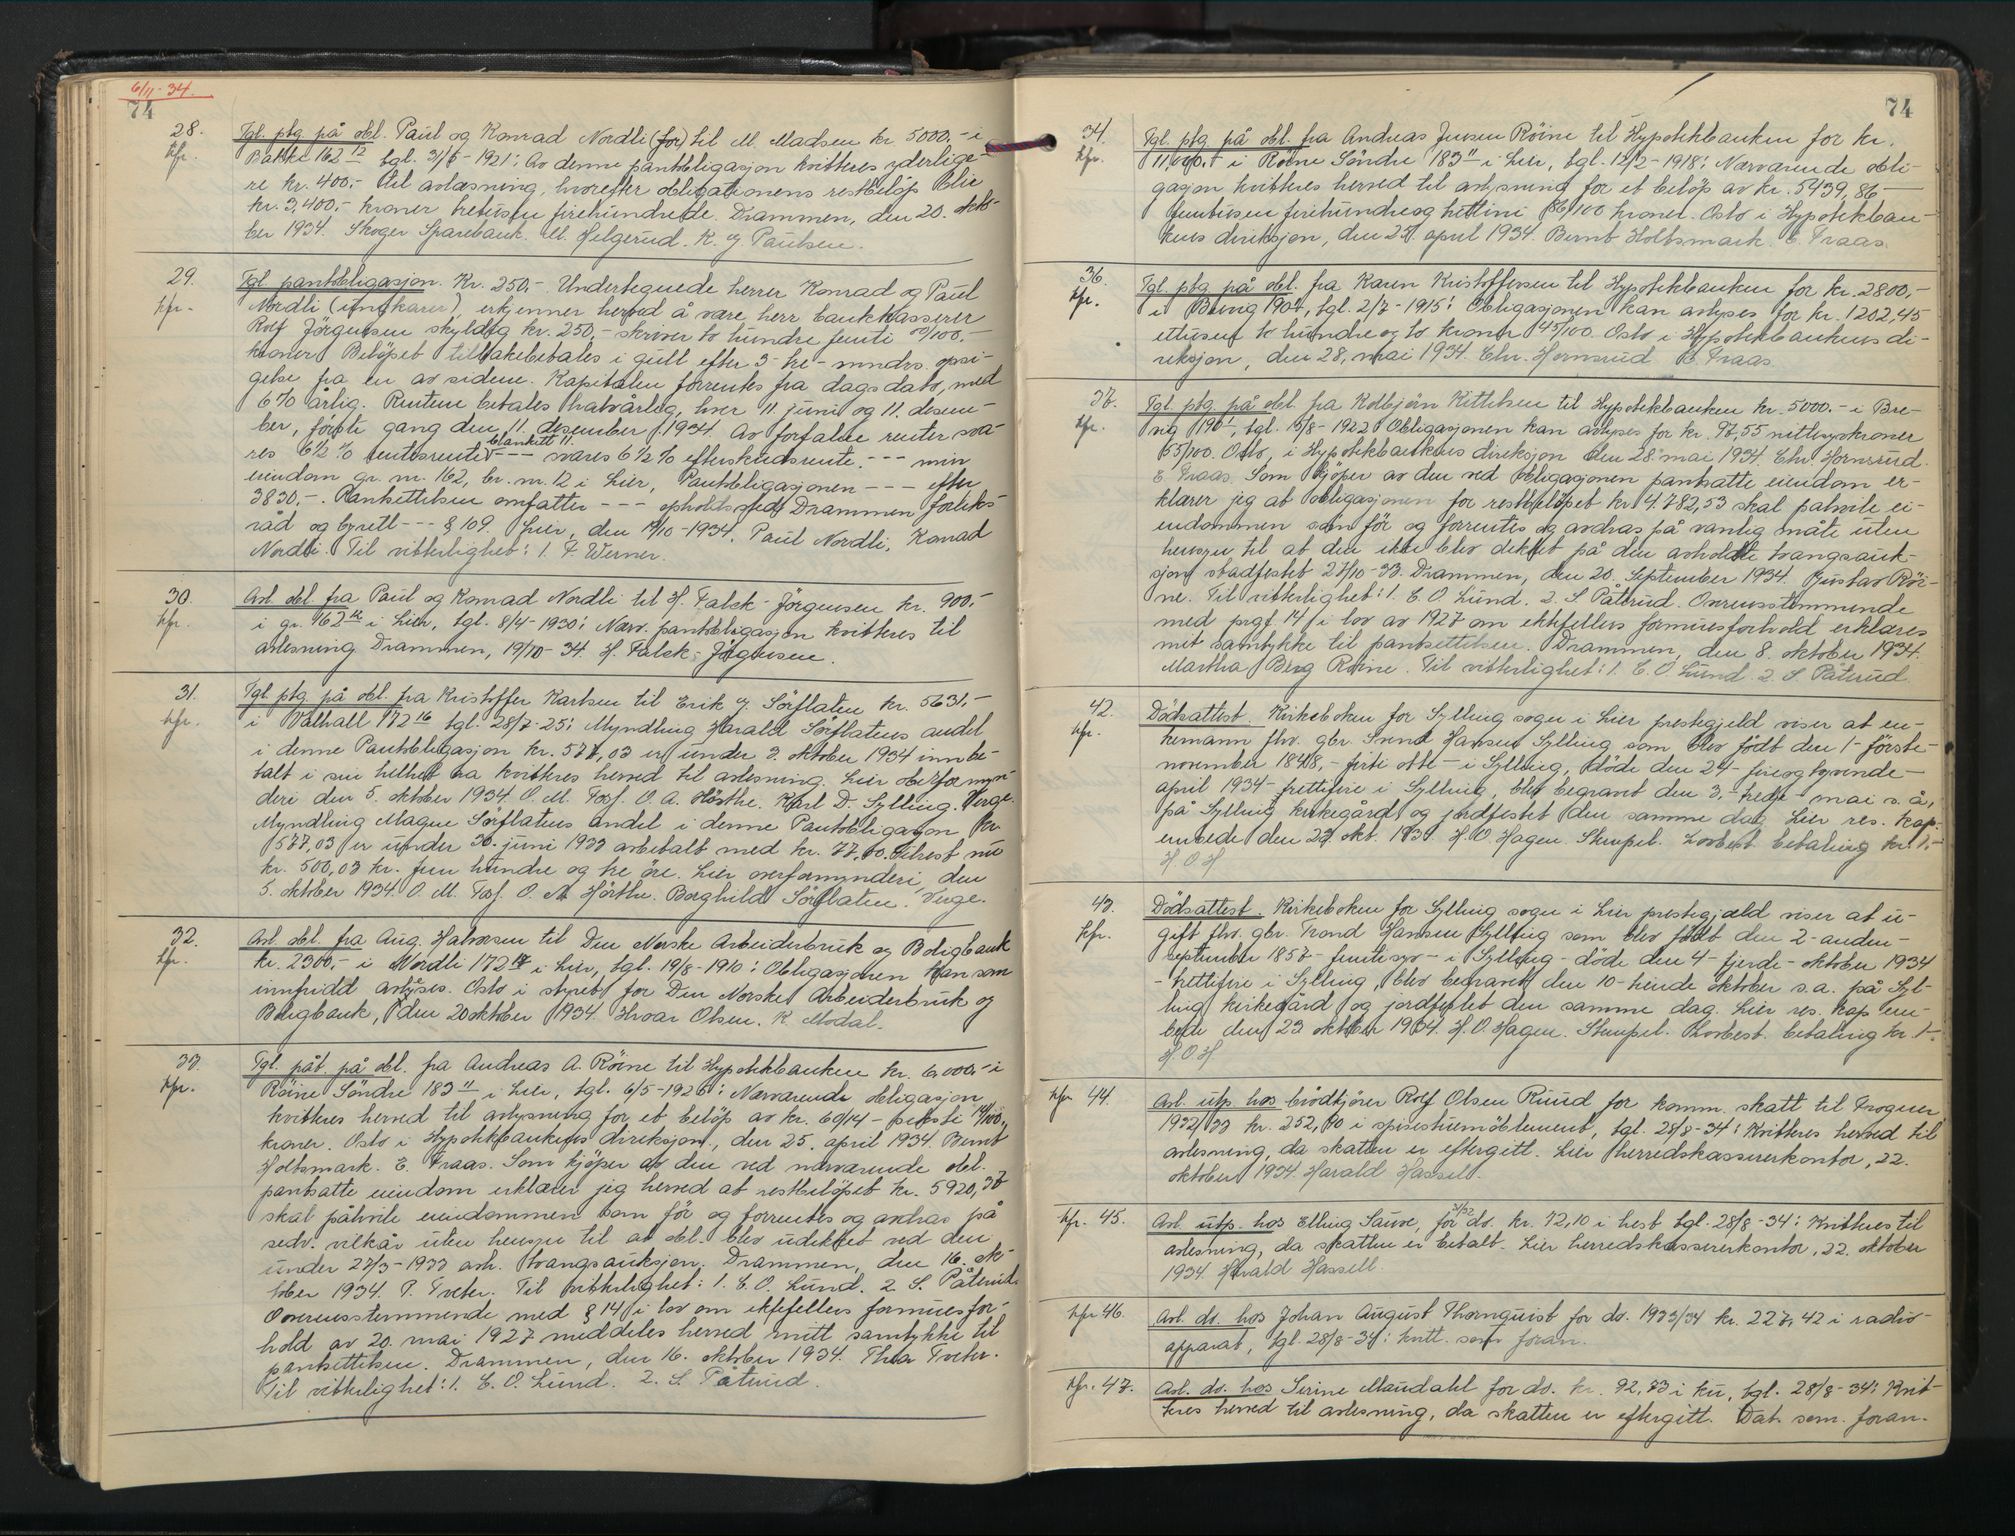 6/11-34.
74
28. Tgl. ptg på obl. Paul og Konrad Nordli (før) til M. Madsen kr 5000,- i
kfr. Bakke 162 12 tgl. 31/5-1921: Av denne pantobligasjon kvitteres yderlige-
re kr. 400,- til avlæsning, hvorefter obligationens restbeløp blir
kr. 3,400,- kroner tretusen firehundrede. Drammen, den 20. okto-
ber 1934. Skoger Sparebank. M. Helgerud. K. g. Paulsen.
29. Tgl. pantobligasjon. Kr. 250,- Undertegnede herrer Konrad og Paul
kfr. Nordli (ungkarer), erkjenner herved å være herr bankkasserer
Rolf Jörgensen skyldig kr. 250,- skriver to hundre femti 00/100.-
kroner Belöpet tilbakebetales i gull efter 3 tre- mndrs. opsi-
gelse fra en av sidene. Kapitalen forrentes fra dags dato, med
6% årlig. Rentene betales halvårlig, hver 11. juni og 11. desem-
ber, förste gang den 11. desember 1934. Av forfalne renter sva-
blankett 11.
res 6 1/2 % rentesrente --- svares 6 1/2 % efterskuddsrente. --- min
eiendom gr. nr. 162, br. nr. 12 i Lier, Pantobligasjonen --- efter
3830,-. Pantsettelsen omfatter --- opholdssted Drammen forliks-
råd og byrett --- § 109. Lier, den 19/10-1934. Paul Nordli, Konrad
Nordli Til vitterlighet: 1. F. Werner.
30. Avl. obl. fra Paul og Konrad Nordli til H. Falck-Jörgensen kr. 900,-
kfr. i gr. 162 12 i Lier, tgl. 8/4-1930: Nærv. pantobligasjon kvitteres til
avlesning Drammen, 19/10-34. H. Falck-Jörgensen.
31. Tgl. ptg på obl. fra Kristoffer Karlsen til Erik g. Sörflaten kr. 5631,-
kfr. i Valhall 172 16 tgl. 28/7-25: Myndling Harald Sörflatens andel
i denne Pantobligasjon kr. 577,03 er under 3. oktober 1934 innbe-
talt i sin helhet kvitteres herved til avlesning. Lier overformyn-
deri den 5. oktober 1934. O. M. Fosf. O. A. Hörthe. Karl D. Sylling. Verge.
Myndling Magne Sörflatens andel i denne Pantobligasjon kr.
577,03 er under 30. juni 1933 avbetalt med kr. 77,00. Tilrest nu
kr. 500,03 kr. fem hundre og tre öre. Lier overformynderi, den
5. oktober 1934 O. M. Fosf. O. A. Hörthe. Borghild Sörflaten. Verge.
32. Avl. obl. fra Aug. Halvorsen til Den Norske Arbeiderbruk og Boligbank
kfr. kr. 2300,- i Nordli 172 17 i Lier, tgl. 19/8-1910: Obligasjonen kan som
innfridd avlyses. Oslo i styret for Den Norske Arbeiderbruk og
Boligbank, den 20 oktober 1934. Hvoar Olsen. K. Modal.
33. Tgl. påt. på obl. fra Andreas A. Röine til Hypotekbanken kr. 6,000,- i
kfr. Röine Söndre 183 11 i Lier, tgl. 6/5-1926: Nærværende obligasjon
kvitteres herved til avlysning for et belöp av kr. 60/14 - seksti 14/100
kroner. Oslo i Hypotekbankens direksjon, den 25. april 1934. Bernt
Holtsmark. E. Fraas. Som kjöper av den ved nærværende obl.
pantsatte eiendom erklærer jeg herved at restbelöpet kr. 5920,37
skal påhvile eiendommen som för og forrentes og avdras på
sedv. vilkår uten hensyn til at obl. blev udekket ved den
under 27/3-1933 avh. tvangsauksjon. Drammen, den 16. ok-
tober 1934. P. Tveter. Til vitterlighet: 1. E. O. Lund. 2. S. Påterud.
Overensstemmende med § 14 i lov om ektefellers formuesfor-
hold av 20. mai 1927 meddeles herved mitt samtykke til
pantsettelsen. Drammen, den 16. oktober 1934. Thea Tveter.
Til vitterlighet: 1. E. O. Lund. 2. S. Påterud.
74
34. Tgl. ptg på obl. fra Andreas Jensen Röine til Hypotekbanken for kr.
kfr. 11,600,- i Röine Söndre 183 11 i Lier, tgl. 12/2-1918: Nærværende obli-
gasjon kvitteres herved til avlysning for et belöp av kr. 5439,86
femtusen firehundreogtrettini 86/100 kroner. Oslo i Hypotekban-
kens direksjon, den 25. april 1934. Bernt Holtsmark. E. Fraas.
36. Tgl. ptg på obl. fra Karen Kristoffersen til Hypotekbanken for kr. 2800,-
kfr. i tgl. 2/7-1915: Obligasjonen kan avlyses for kr. 1202,45
ettusen to hundre og to kroner 45/100. Oslo i Hypotekbankens di-
reksjon, den 28. mai 1934. Chr. Hornsrud E. Fraas.
37. Tgl. ptg på obl. fra Kolbjörn Kittelsen til Hypotekbanken kr. 5000.- i Bre-
kfr. tgl. 15/8-1922: Obligasjonen kan avlyses for kr. 97,55 nittisyv kroner
55/100. Oslo, i Hypotekbankens direksjon den 28. mai 1934. Chr. Hornsrud.
E. Fraas. Som kjöper av den ved obligasjonen pantsatte eiendom er-
klærer jeg at obligasjonen for restbelöpet kr. 4.782,53 skal påhvile ei-
endommen som för og forrentes og avdras på vanlig måte uten
hensyn til at den ikke blev dekket på den avholdte tvangsauk-
sjon stadfestet 27/10-33. Drammen, den 20. September 1934. Gustav Röi-
ne. Til vitterlighet: 1. E. O. Lund. 2. S. Påterud. Overensstemmende
med prgf. 14 i lov av 1927 om ektefellers formuesforhold erklæres
mit samtykke til pantsettelsen. Drammen, den 8. oktober 1934.
Martha Berg Röine. Til vitterlighet: 1. E. O. Lund. 2. S. Påterud.
42. Dödsattest. Kirkeboken for Sylling sogn i Lier prestegjeld viser at en-
kfr. kemann fhv. gbr. Svend Hansen Sylling som blev födt den 1-förste-
november 1848,- förti otte - i Sylling, döde den 24- fireogtyvende-
april 1934- trettifire i Sylling, blev begravet den 3,- tredje - mai s. å,
på Sylling kirkegård og jordfestet den samme dag. Lier res. kap.
embede den 23 okt. 1934 H. O. Hagen. Stempel. Lovbest. betaling kr. 1,-
H. O. H
43. Dödsattest. Kirkeboken for Sylling sogn i Lier prestegjeld viser at u-
kfr. gift fhv. gbr. Trond Hansen Sylling som blev födt den 2-anden-
september 1857- femtisyv- i Sylling- döde den 4- fjerde- oktober 1934
- trettifire i Sylling, blev begravet den 10-tiende oktober s.a. på Syl-
ling kirkegård og jordfestet den samme dag. Lier res. kap. em-
bede den 23 oktober 1934. H. O. Hagen. Stempel. Lovbest. betaling kr. 1-
H. O. H
kfr 44. Avl. utp. hos brödkjörer Rolf Olsen Ruud for komm. skatt til Frogner
1932/33 kr. 252,10 i spisestuemöblement, tgl. 28/8-34: Kvitteres herved til
avlesning, da skatten er eftergitt. Lier herredskassererkontor, 22.
oktober 1934. Harald Hassell.
31/32
kfr. 45. Avl. utp. hos Elling Sauve, for do. kr. 72,10 i hest tgl. 28/8-34: Kvitteres til
avlesning, da skatten er betalt. Lier herredskassererkontor, 22. oktober
1934. Harald Hassell.
kfr 46. Avl. do. hos Johan August Thornquist for do. 1933/34 kr. 227,42 i radio-
apparat, tgl. 28/8-34: kvitt. som foran.
kfr. 47. Avl. do. hos Serine Maudahl for do. kr. 92,73 i ku, tgl. 28/8-34: Kvit-
teres herved til avlesning, da skatten er eftergitt. Dat. som. foran.